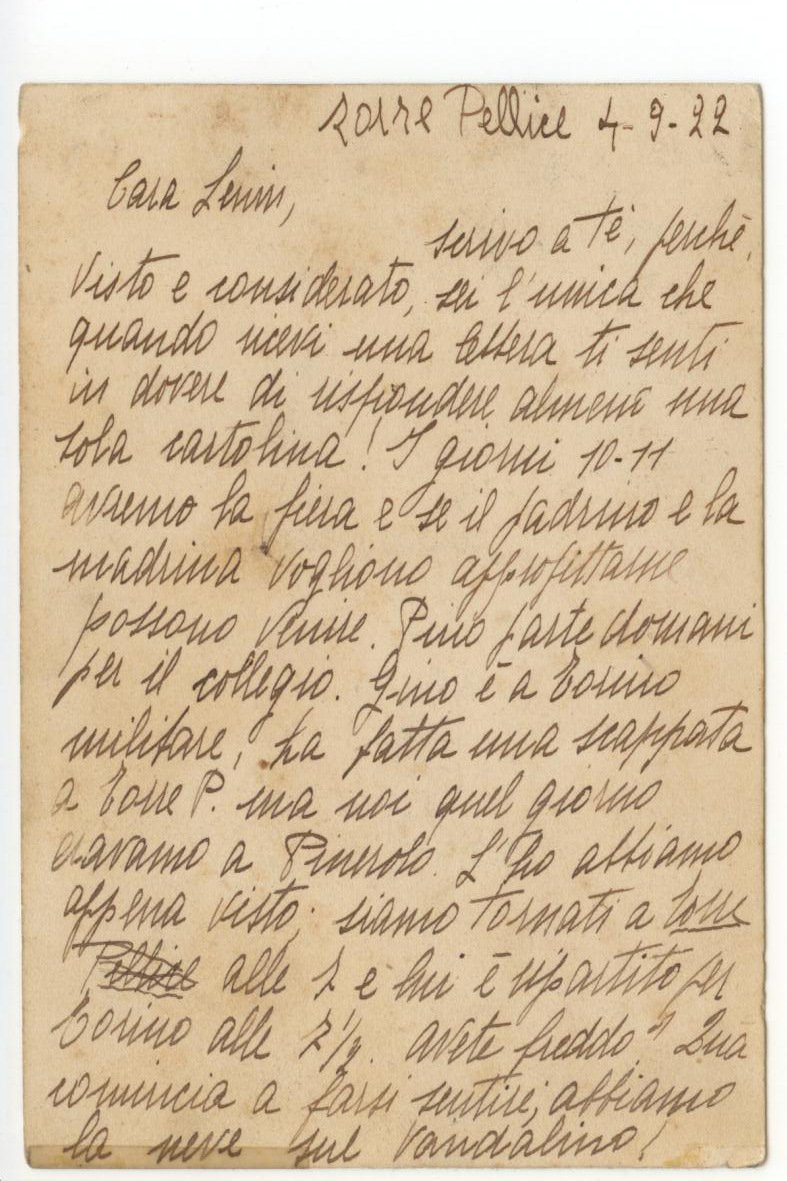 Torre Pellice 4-9-22
Cara Lenin,
scrivo a te, perchè,
visto e considerato, sei l'unica che
quando ricevi una lettera ti senti
in dovere di rispondere almeno una
sola cartolina! I giorni 10-11
avremo la fiera e se il padrino e la
madrina vogliono approfittarne
possono venire. Pino parte domani
per il collegio. Gino è a Torino
militare, ha fatta una scappata
a Torre P. ma noi quel giorno
eravamo a Pinerolo. L'ho abbiamo
appena visto; siamo tornati a Torre
Pellice alle 7 e lui è ripartito per
Torino alle 7 1/2. avete freddo? Qua
comincia a farsi sentire; abbiamo
la neve sul Vandalino!